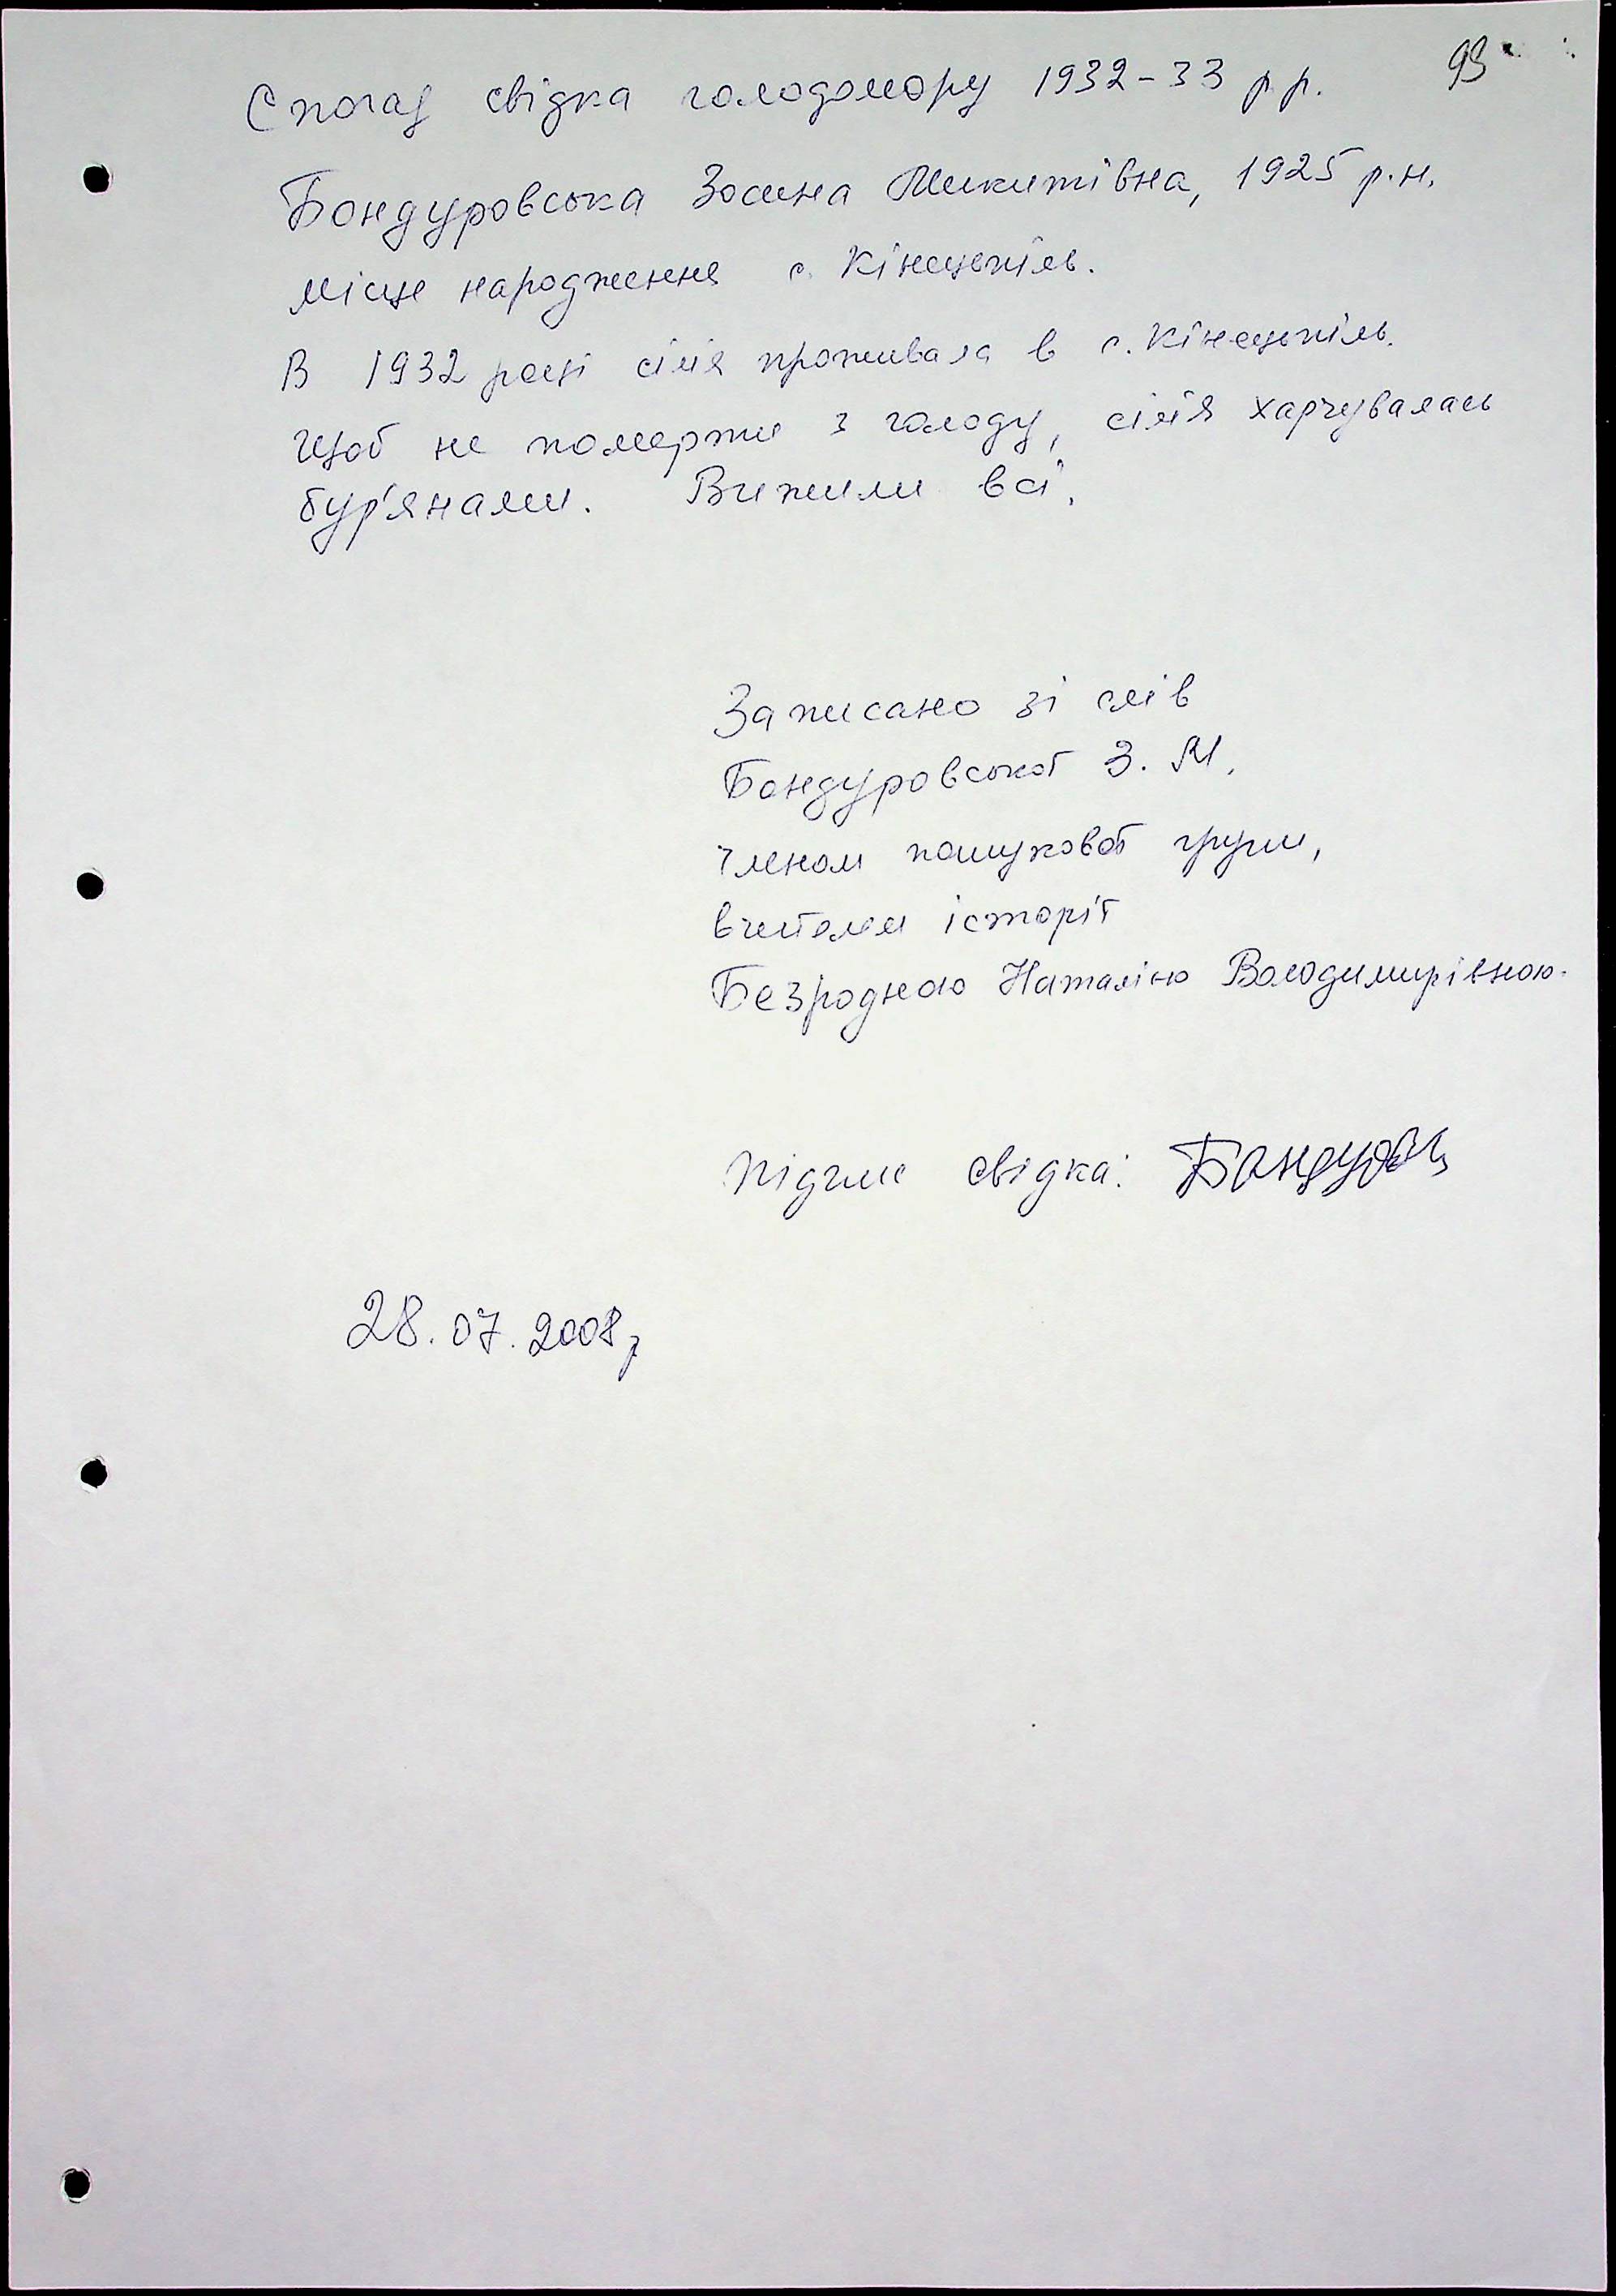 93
Спогад свідка голодомору 1932-33 р.р.
Бондуровська Зосина Микитівна, 1925 р.н.
місце народження с. Кінецьпіль.
В 1932 році сім'я проживала в с. Кінецьпіль.
Щоб не померти з голоду, сім'я харчувалась
бур'янами. Вижили всі.
Записано зі слів
Бондуровської З. М.
членом пошукової групи,
вчителем історії
Безродною Наталією Володимирівною.
Підпис свідка:
28.07.2008р